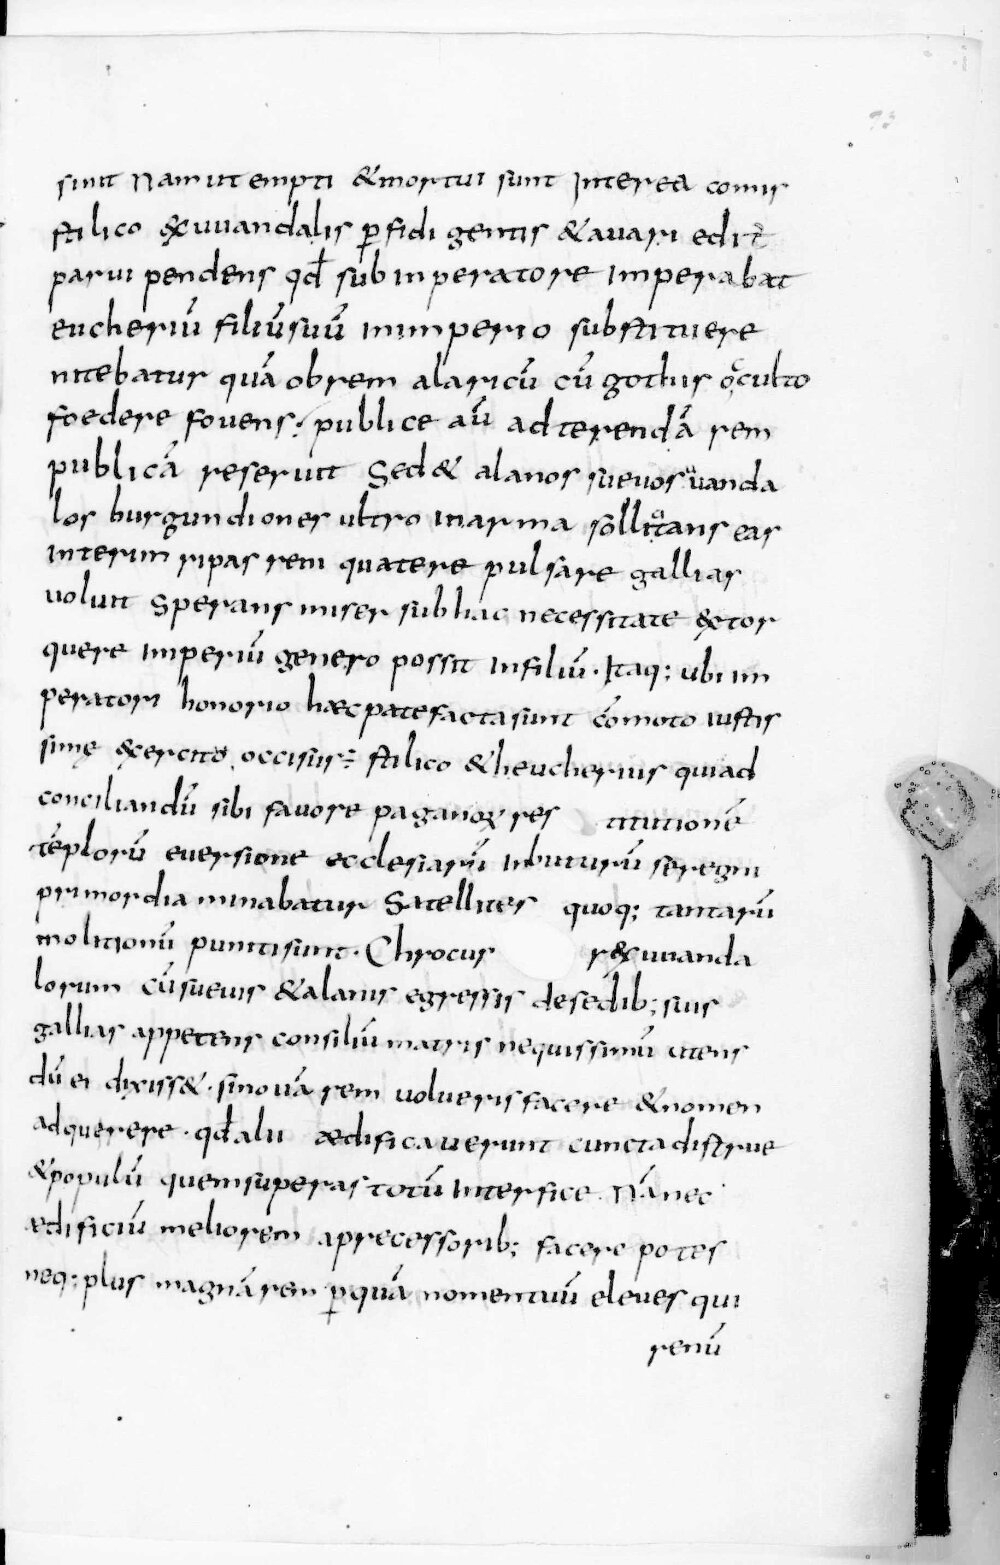 sunt Nam ut empti & mortui sunt Interea comis
stilico ex uuandalis ꝑfidi gentis & auari edit᷒
parui pendens qđ sub inperatore imperabat
eucheriū filiū suū inimperio substituere
nitebatur quā obrem alaricū cū gothis occulto
foedere fouens; publice aū adterendā rem
publicā reseruit Sed & alanos sueuos uuanda
los burgundiones ultro inarma sollicitans eas
interim ripas reni quatere pulsare gallias
uoluit Sperans miser sub hac necessitate extor
quere imperiū genero possit infiliū. Itaq; ubi im
peratori honorio hæc patefacta sunt cōmoto iustis
simę exercito occisus÷ stilico & heucherius qui ad
conciliandū sibi fauore paganoꝝ res titutionē
tēplorū euersione ecclesiarū inbuturū se regni
primordia minabatur Satellites quoq; tantarū
molitionū puniti sunt. Chrocus rex uuanda
lorum cū sueuis & alanis egressis de sedib; suis
gallias appetens consiliū matris nequissimū utens
dū ei dixiss&. si nouā rem uolueris facere & nomen
adquerere. qđ alii ædificauerunt cuncta distrue
& populū quem superas totū interfice. Nā nec
ædificiū meliorem a precessorib; facere potes
neq; plus magnā rem ꝑ quā nomen tuū eleues qui
renū